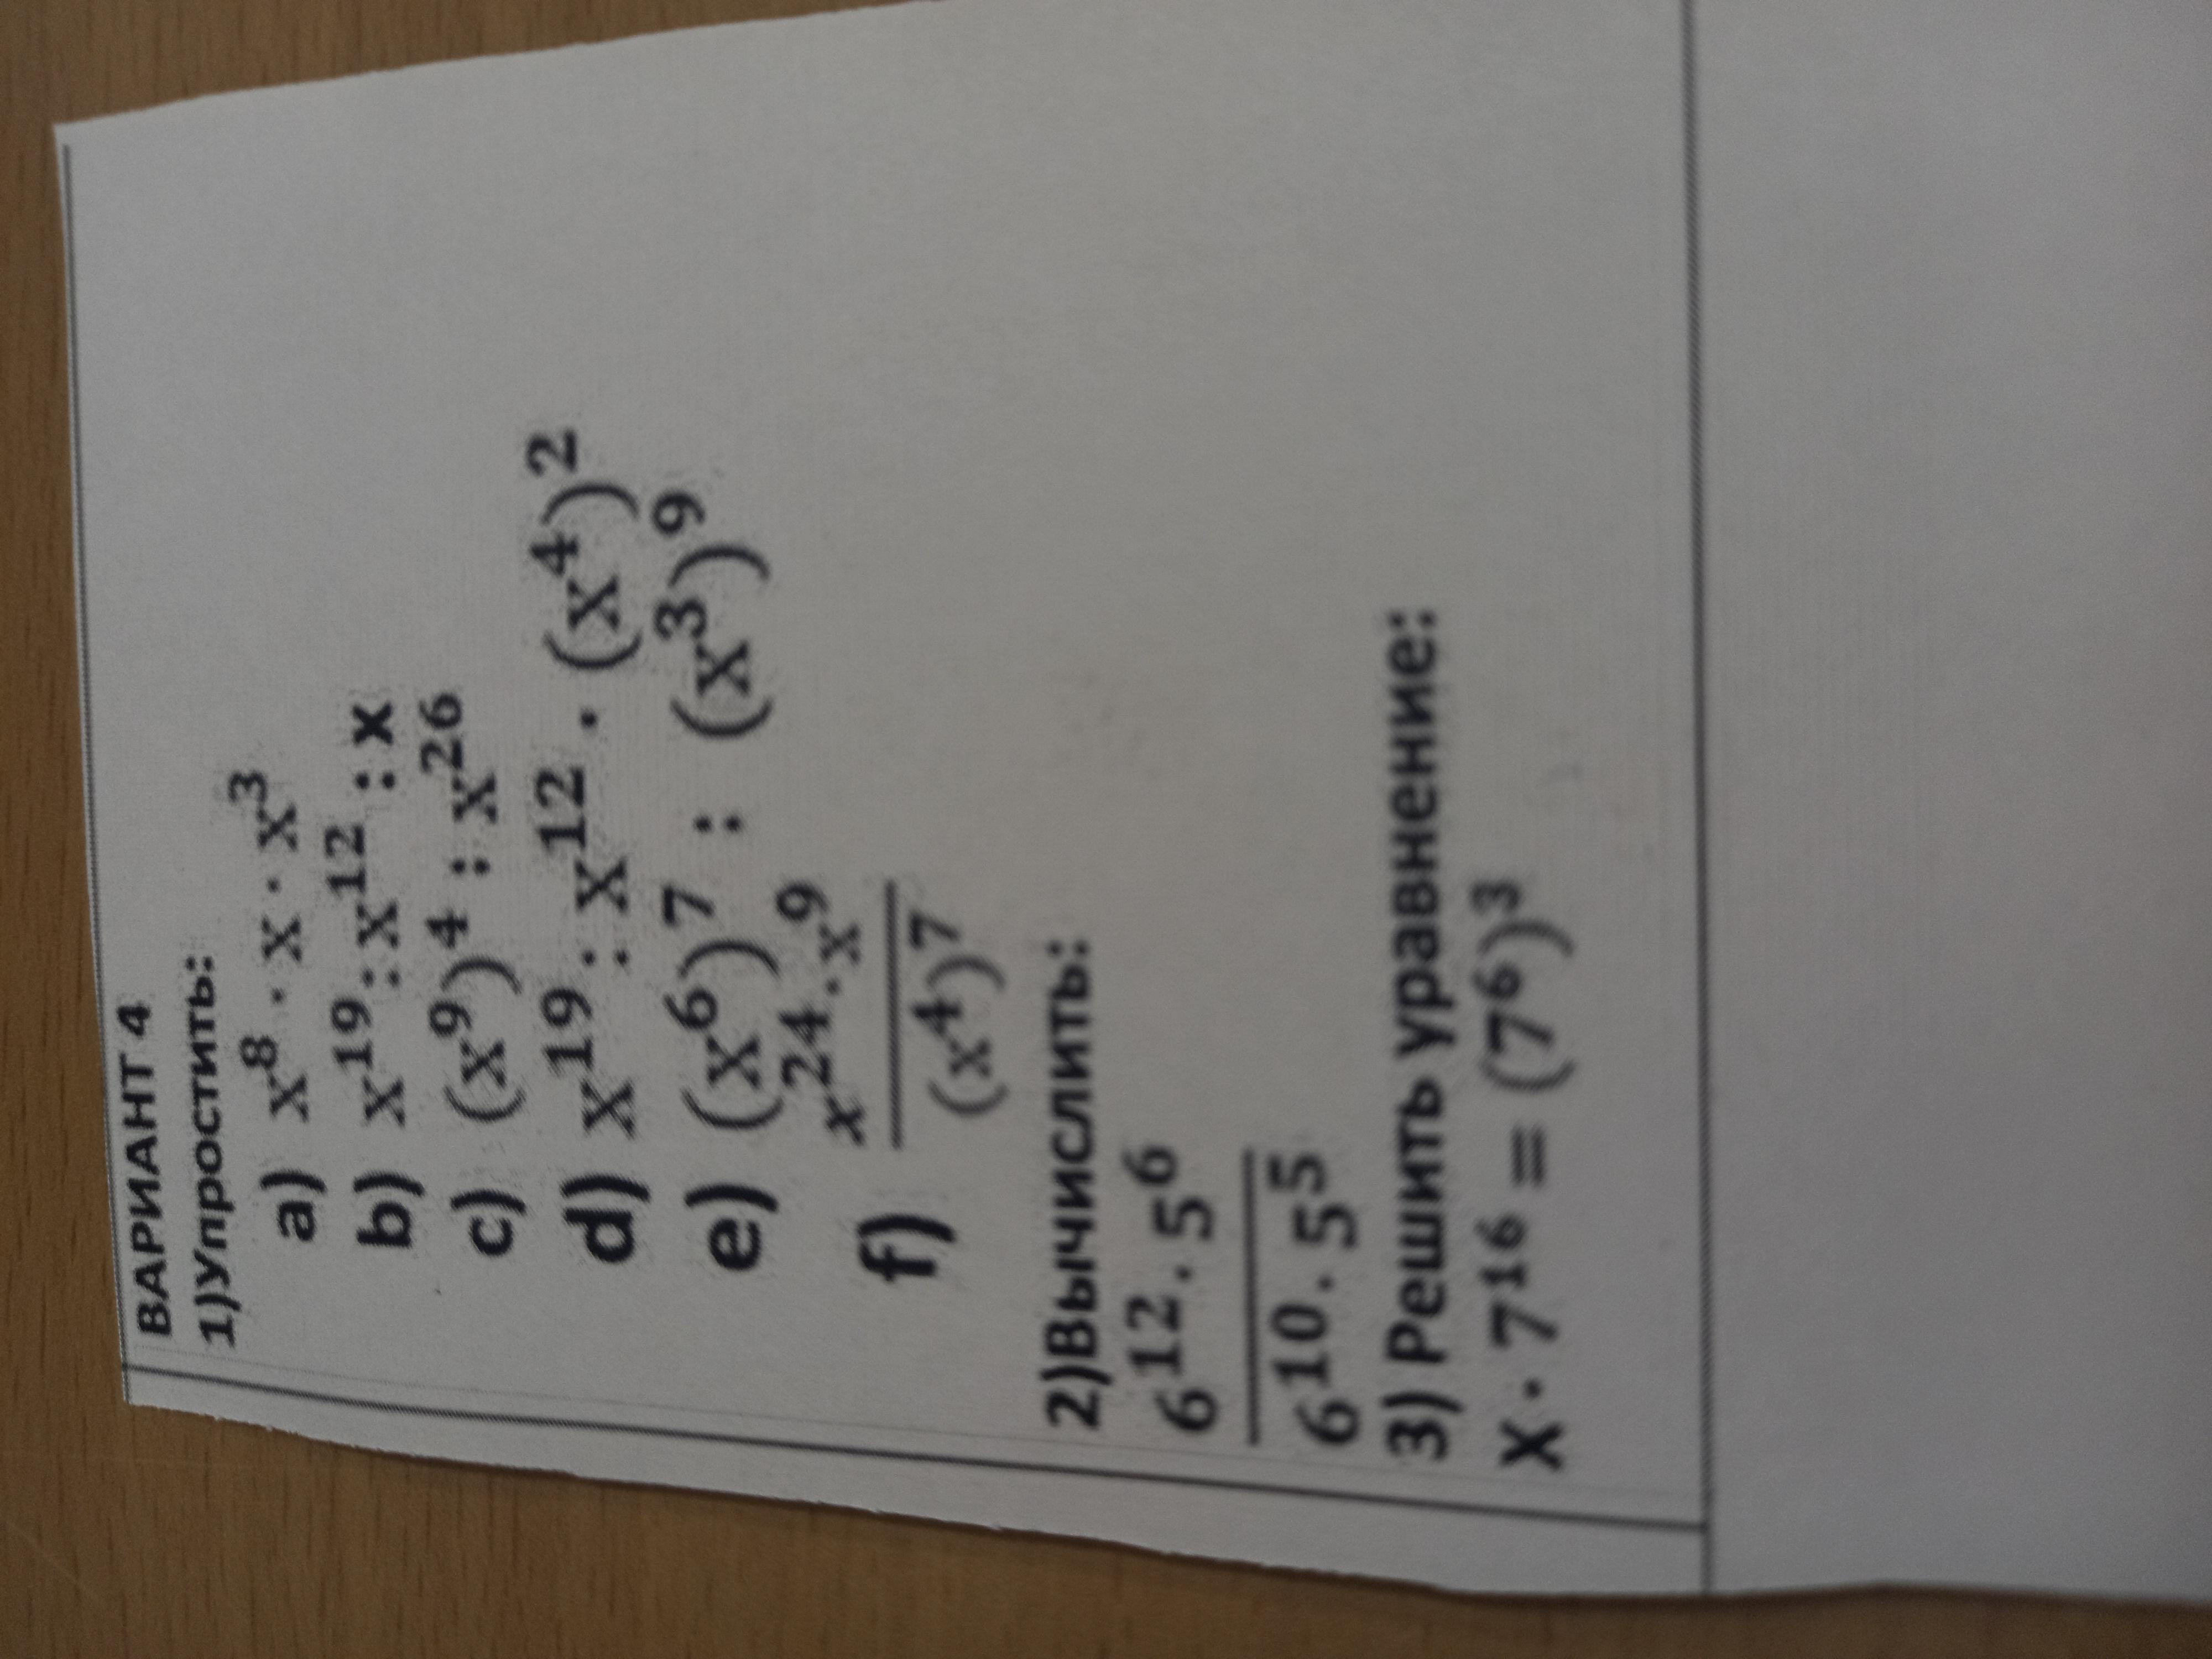 ВАРИАНТ 4
1)Упростить:
a) x⁸ · x · x³
b) x¹⁹ : x¹² : x
c) (x⁹)⁴ : x²⁶
d) x¹⁹ : x¹² · (x⁴)²
e) (x⁶)⁷ : (x³)⁹
f) x²⁴·x⁹ / (x⁴)⁷
2)Вычислить:
6¹² · 5⁶
6¹⁰ · 5⁵
3) Решить уравнение:
X · 7¹⁶ = (7⁶)³